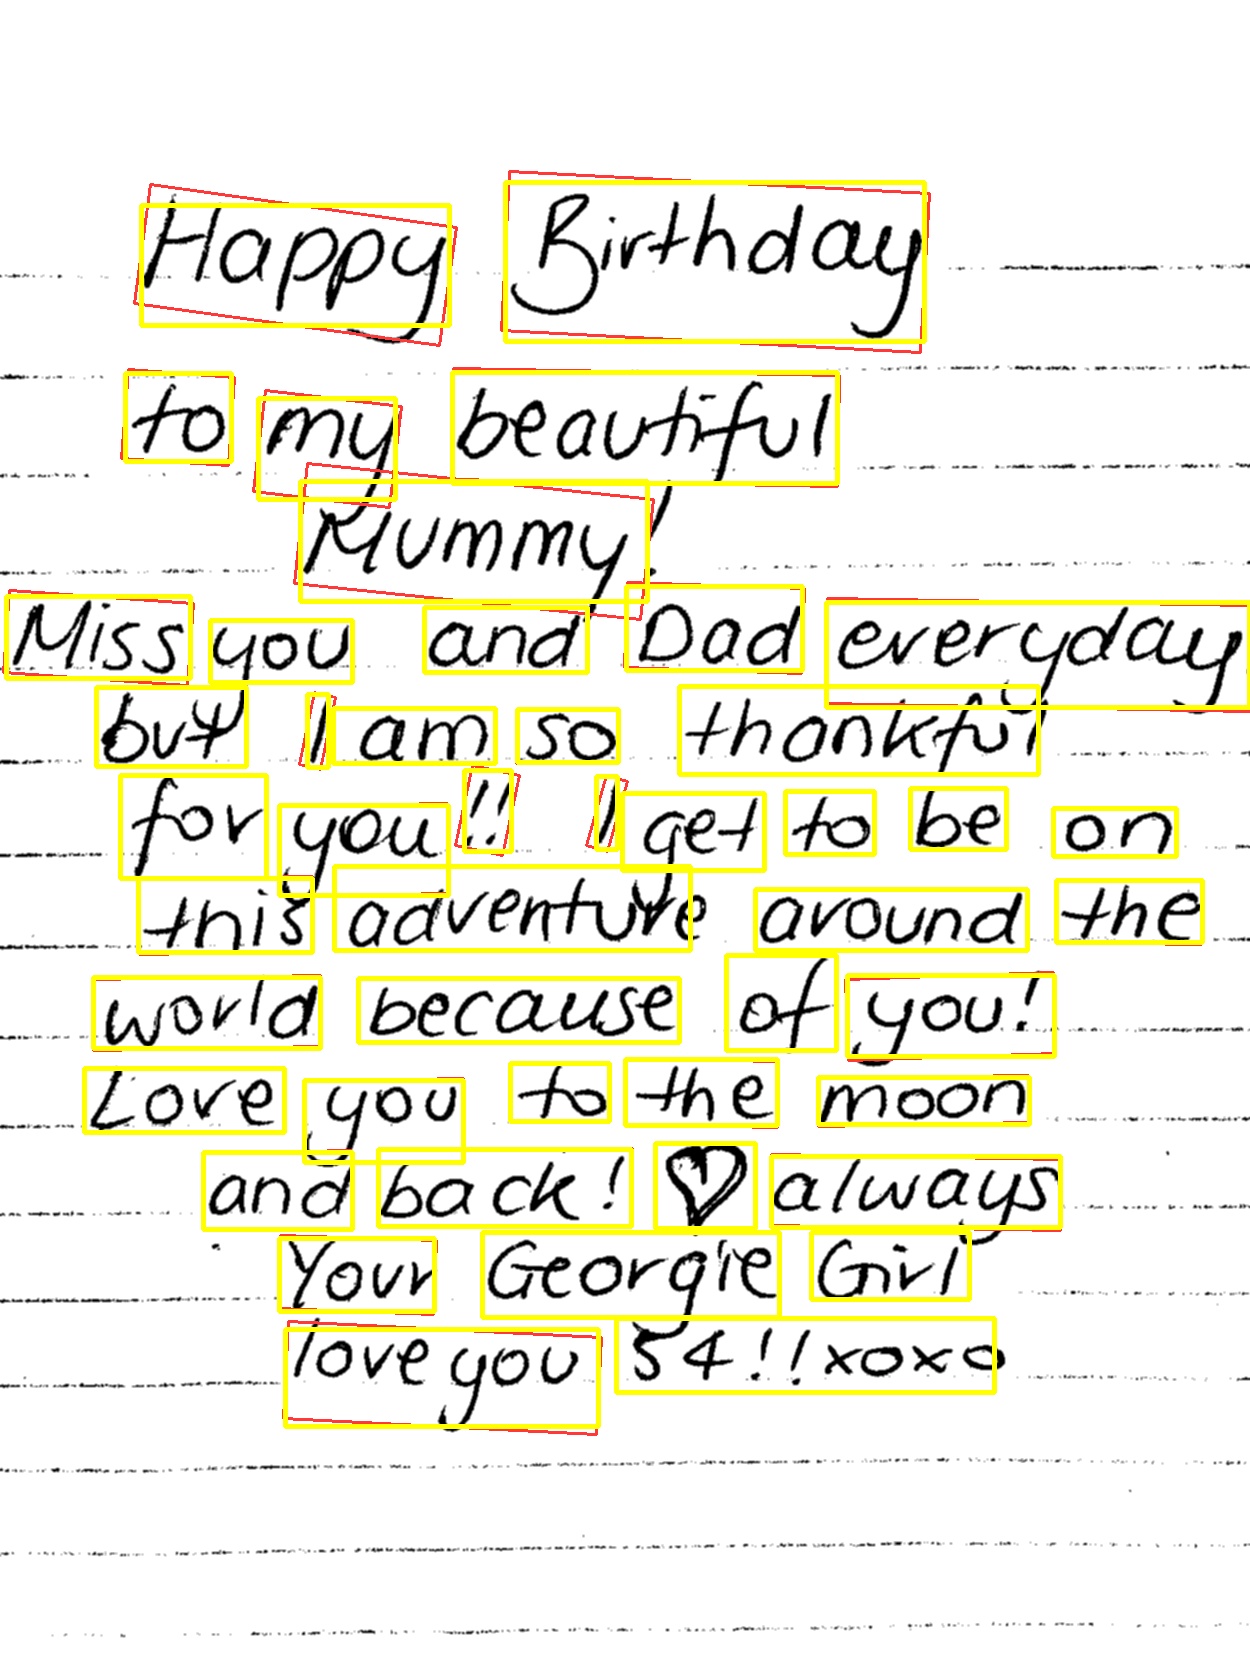 Happy Birthday
to my beautiful
Mummy!
Miss you and Dad everyday
but I am so thankful
for you!! I get to be on
this adventure around the
world because of you!
Love you to the moon
and back! ♡ always
Your Georgie Girl
love you 54!! xoxo